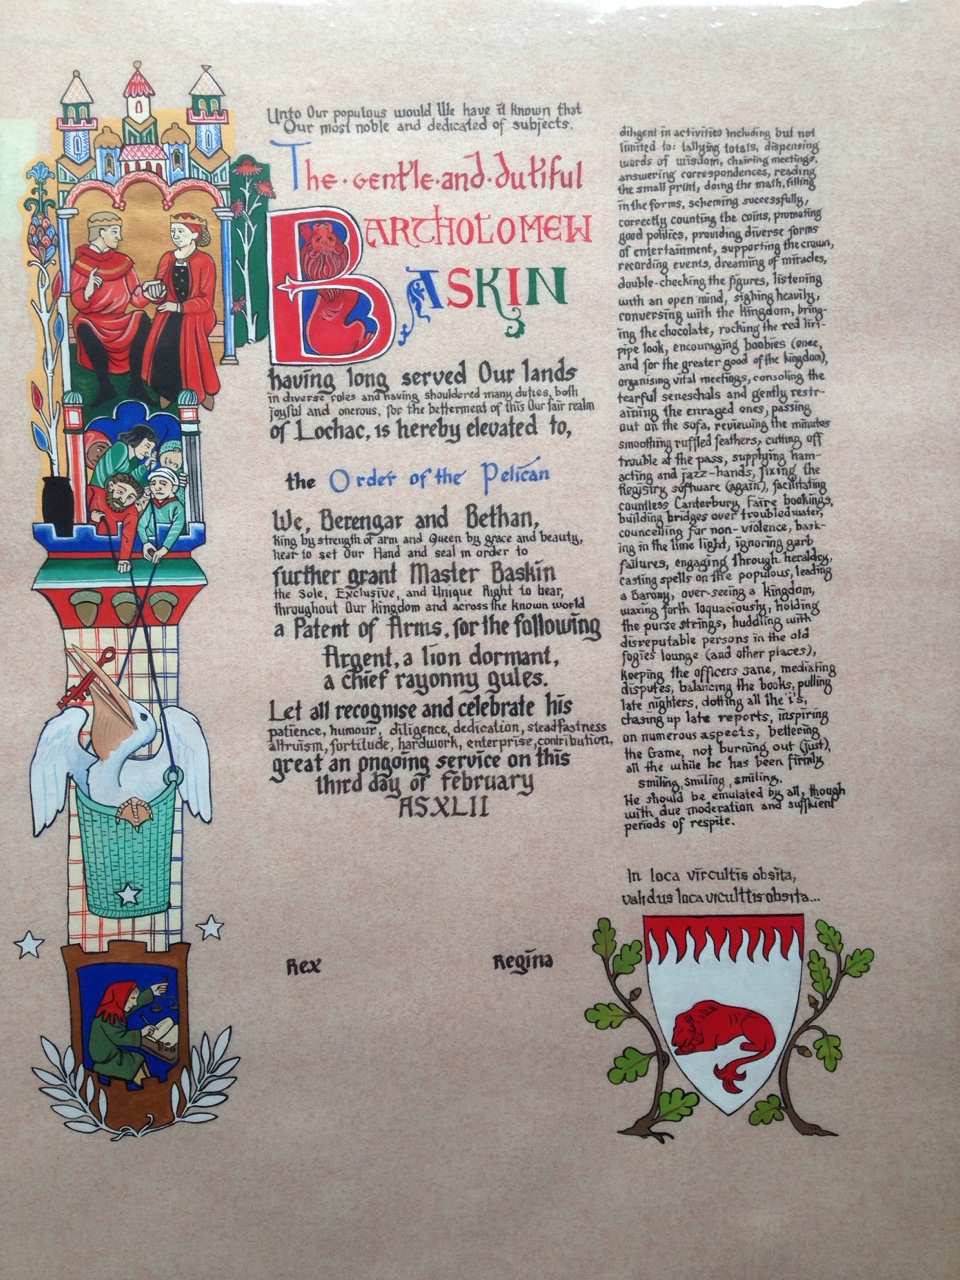 Unto Our populous would We have it known that
Our most noble and dedicated of subjects.
The·gentle·and·dutiful
BARTHOLOMEW
BASKIN
having long served Our lands
in diverse roles and having shouldered many duties, both
joyful and onerous, for the betterment of this Our fair realm
of Lochac, is hereby elevated to,
the Order of the Pelican
We, Berengar and Bethan,
King by strength of arm and Queen by grace and beauty,
hear to set Our Hand and seal in order to
further grant Master Baskin
the Sole, Exclusive, and Unique Right to bear,
throughout Our Kingdom and across the known world
a Patent of Arms, for the following
Argent, a lion dormant,
a chief rayonny gules.
Let all recognise and celebrate his
patience, humour, diligence, dedication, steadfastness
altruism, fortitude, hardwork, enterprise, contribution,
great an ongoing service on this
third day of february
ASXLII
Rex Regina
diligent in activities including but not
limited to: tallying totals, dispensing
words of wisdom, chairing meetings,
answering correspondences, reading
the small print, doing the math, filling
in the forms, scheming successfully,
correctly counting the coins, promoting
good politics, providing diverse forms
of entertainment, supporting the crown,
recording events, dreaming of miracles,
double-checking the figures, listening
with an open mind, sighing heavily,
conversing with the Kingdom, bring-
ing the chocolate, rocking the red liri-
pipe look, encouraging boobies (once,
and for the greater good of the kingdom),
organising vital meetings, consoling the
tearful seneschals and gently restr-
aining the enraged ones, passing
out on the sofa, reviewing the minutes
smoothing ruffled feathers, cutting off
trouble at the pass, supplying ham-
acting and jazz-hands, fixing the
Registry software (again), facilitating
countless Canterbury Faire bookings,
building bridges over troubled water,
councelling for non-violence, bask-
ing in the lime light, ignoring garb
failures, engaging through heraldry,
casting spells on the populous, leading
a Barony, over-seeing a kingdom,
waxing forth loquaciously, holding
the purse strings, huddling with
disreputable persons in the old
fogies lounge (and other places),
keeping the officers sane, mediating
disputes, balancing the books, pulling
late nighters, dotting all the i's,
chasing up late reports, inspiring
on numerous aspects, bettering
the Game, not burning out (just),
all the while he has been firmly
smiling, smiling, smiling.
He should be emulated by all, though
with due moderation and suffkient
periods of respite.
In loca vircultis obsita,
validus loca viculttis obsita...